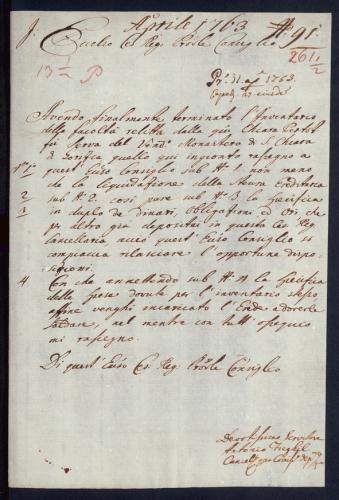 Aprile 1763
N° 91.
Eccelso Ces: Reg: Prõvle Consiglio
261/2
13
P
Prᵗ: 31. 1763.
Avendo finalmente terminato l'Inventario
della facoltà relitta dalla qm Chiara
fu Serva del Vend: Monastero di S. Chiara
di Gorizia quello qui ingionto rassegno a
quest' Ecc̃so Consiglio sub N° 1 non meno
che la liquidazione della Massa Ereditaria
2 sub N° 2. così pure sub N° 3. la specifica
3 in duplo de Dinari, Obligationi, ed Ori, che
per altro già depositai in questa Ces: Reg:
Cancellaria, acciò quest' Ecc̃so Consiglio si
compiaccia rilasciare l'opportuna dispo-
sizioni.
4 Con che annettendo sub N° 4 la specifica
delle spese dovute per l'inventario stesso
affine venghi incaricato l'Erede a doverle
saldare, nel mentre con tutt' ossequio
mi rassegno.
Di quest' Ecc̃so Ces: Reg: Prõvle Consiglio
Servitore
Antonio